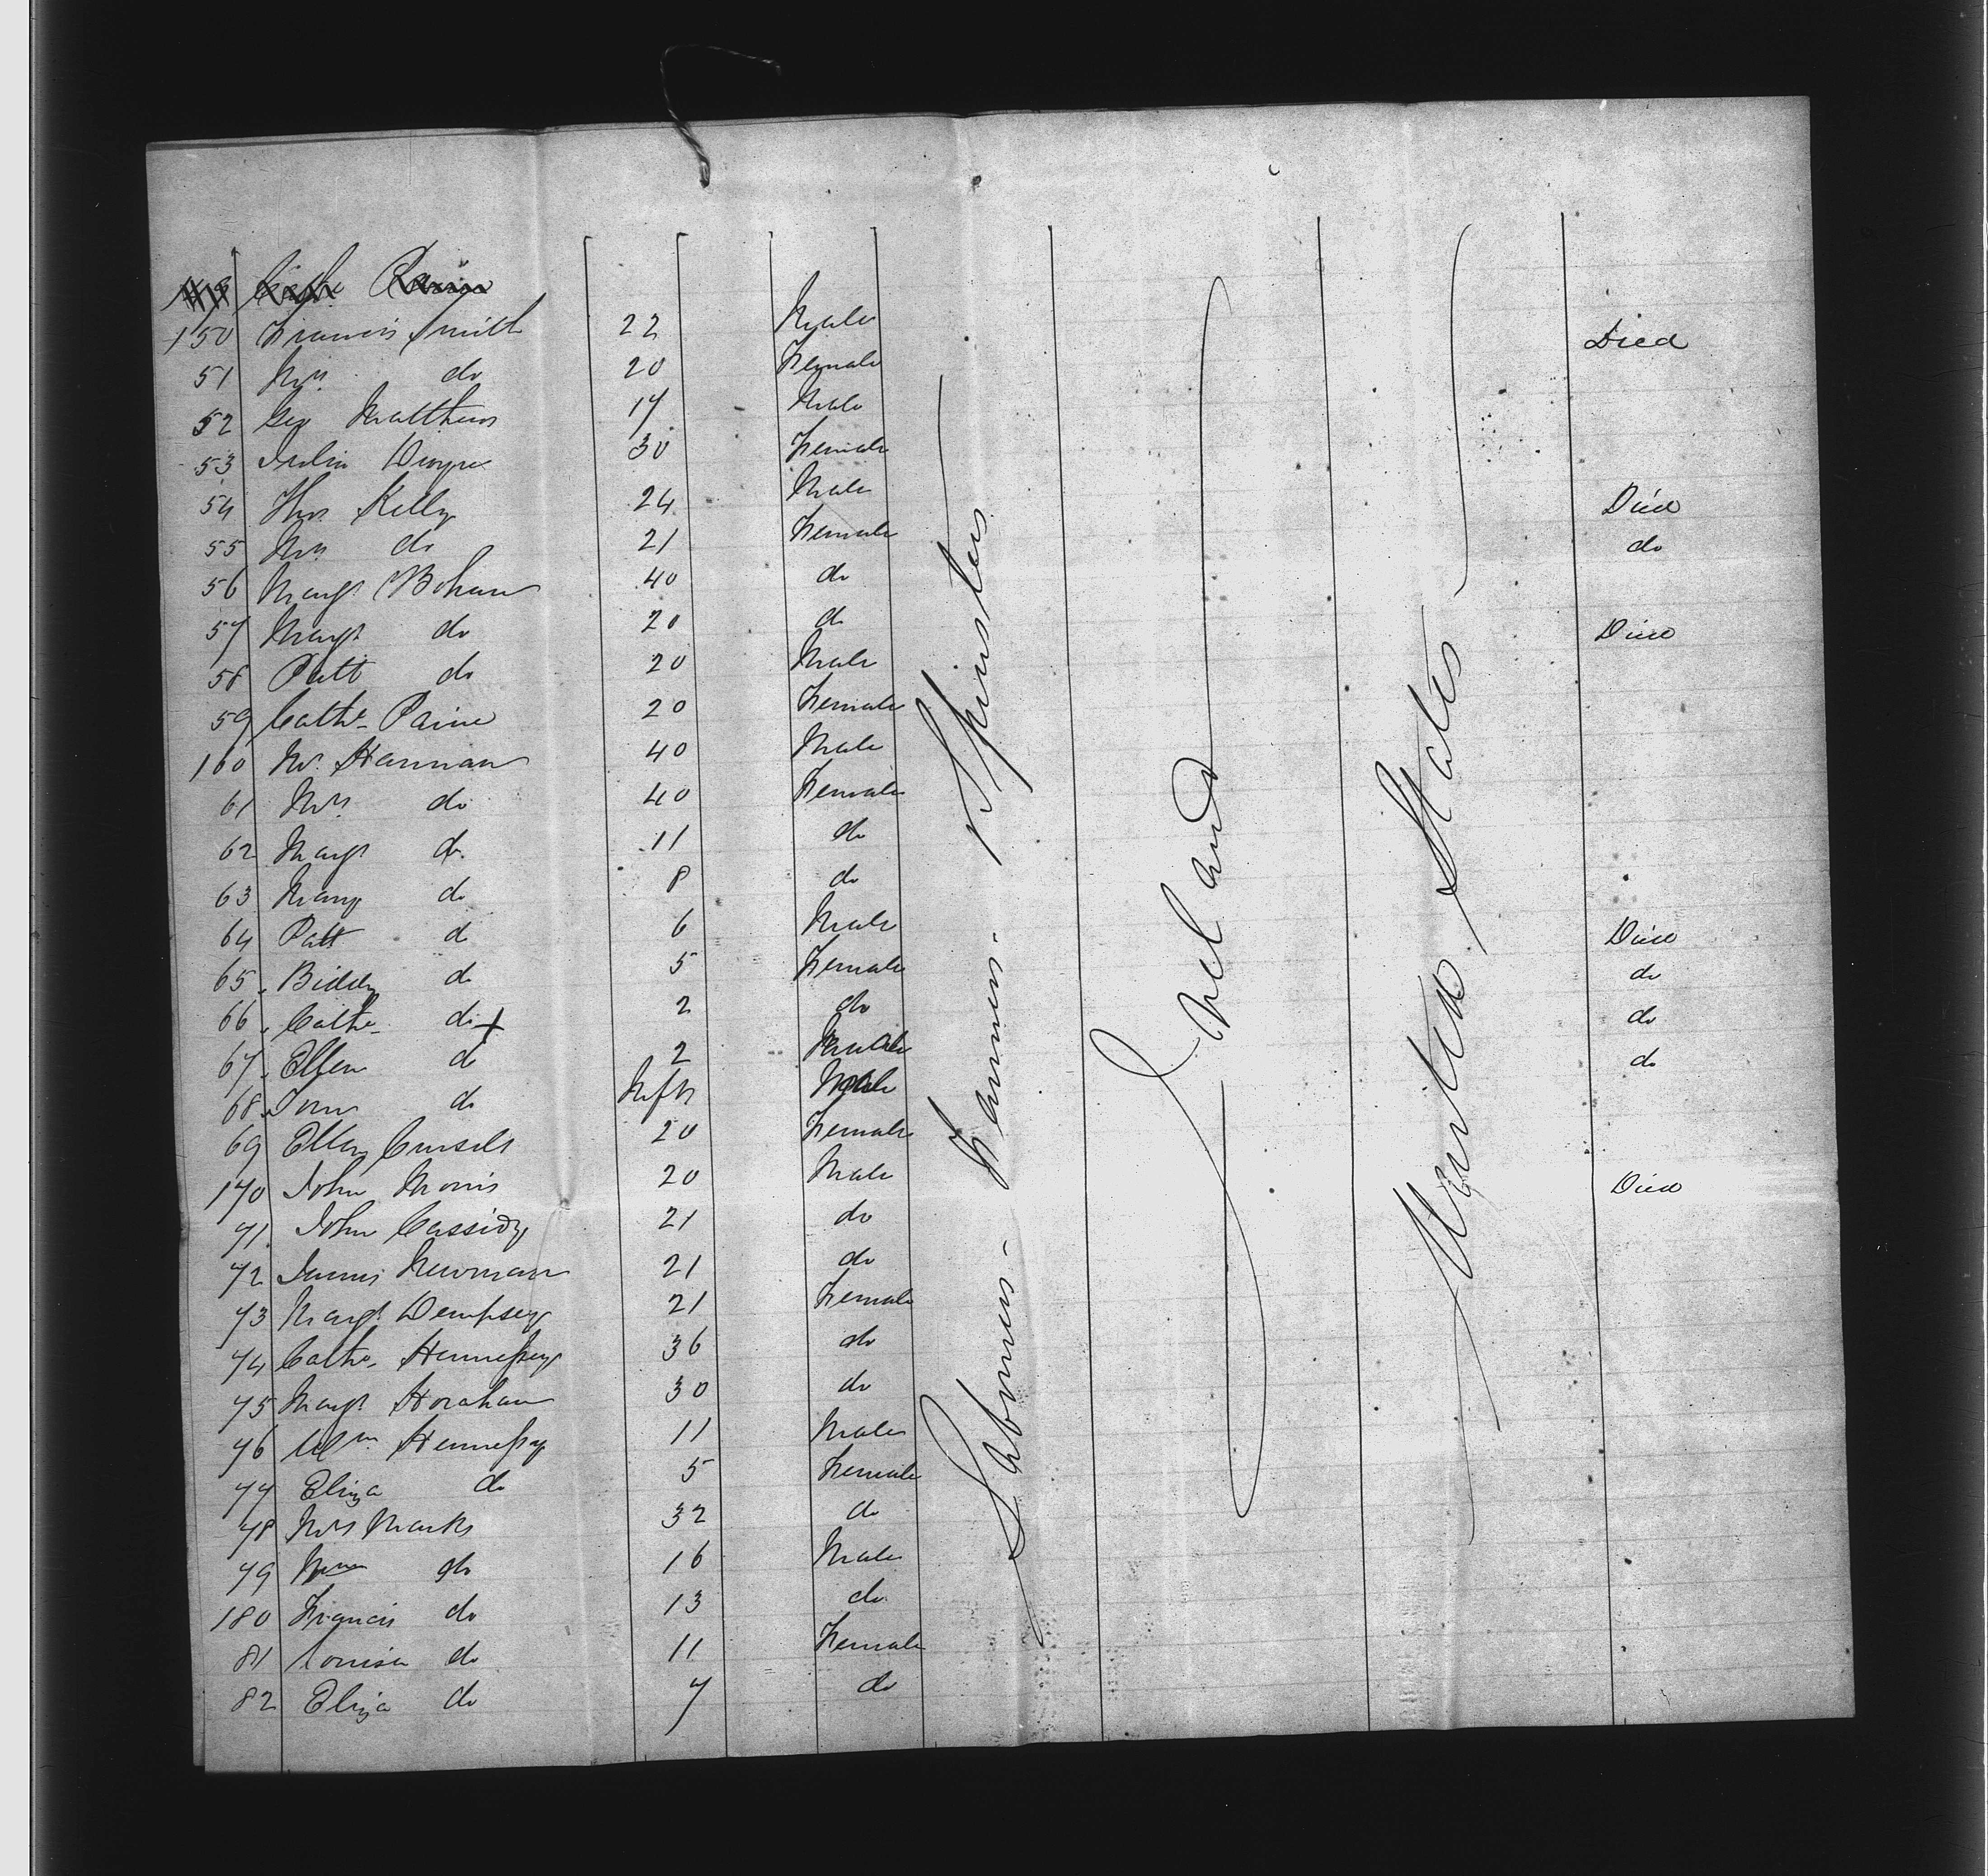 150 Francis Smith 22 Male Died
51 Mrs. do 20 Female
52 Geo Matthews 17 Male
53 Julia Dwyre 30 Female
54 Thos. Kelly 24 Male Died
55 Mrs do 21 Female do
56 Margt. Bohan 40 do
57 Margt do 20 do Died
58 Patt do 20 Male
59 Cathe. Paine 20 Female
160 Mr. Hannan 40 Male
61 Mrs. do 40 Female
62 Margt do. 11 do
63 Mary do 8 do
64 Patt do 6 Male Died
65 Biddy do 5 Female do
66 Cathe. do X 2 do do
67 Ellen do 2 Female do
68 do Infn Male
69 Ellen 20 Female
170 John Morris 20 Male Died
71. John Cassidy 21 do
72 James Newman 21 do
73 Margt. Dempsey 21 Female
74 Cathe. Hennessy 36 do
75 Margt. Horahan 30 do
76 Wm. Hennessy 11 Male
77 Eliza do 5 Female
78 Mrs Marks 32 do
79 do 16 Male
180 Francis do 13 do
81 Louisa do 11 Female
82 Eliza do 7 do
Labourers - Farmers - Spinsters
Ireland
United States